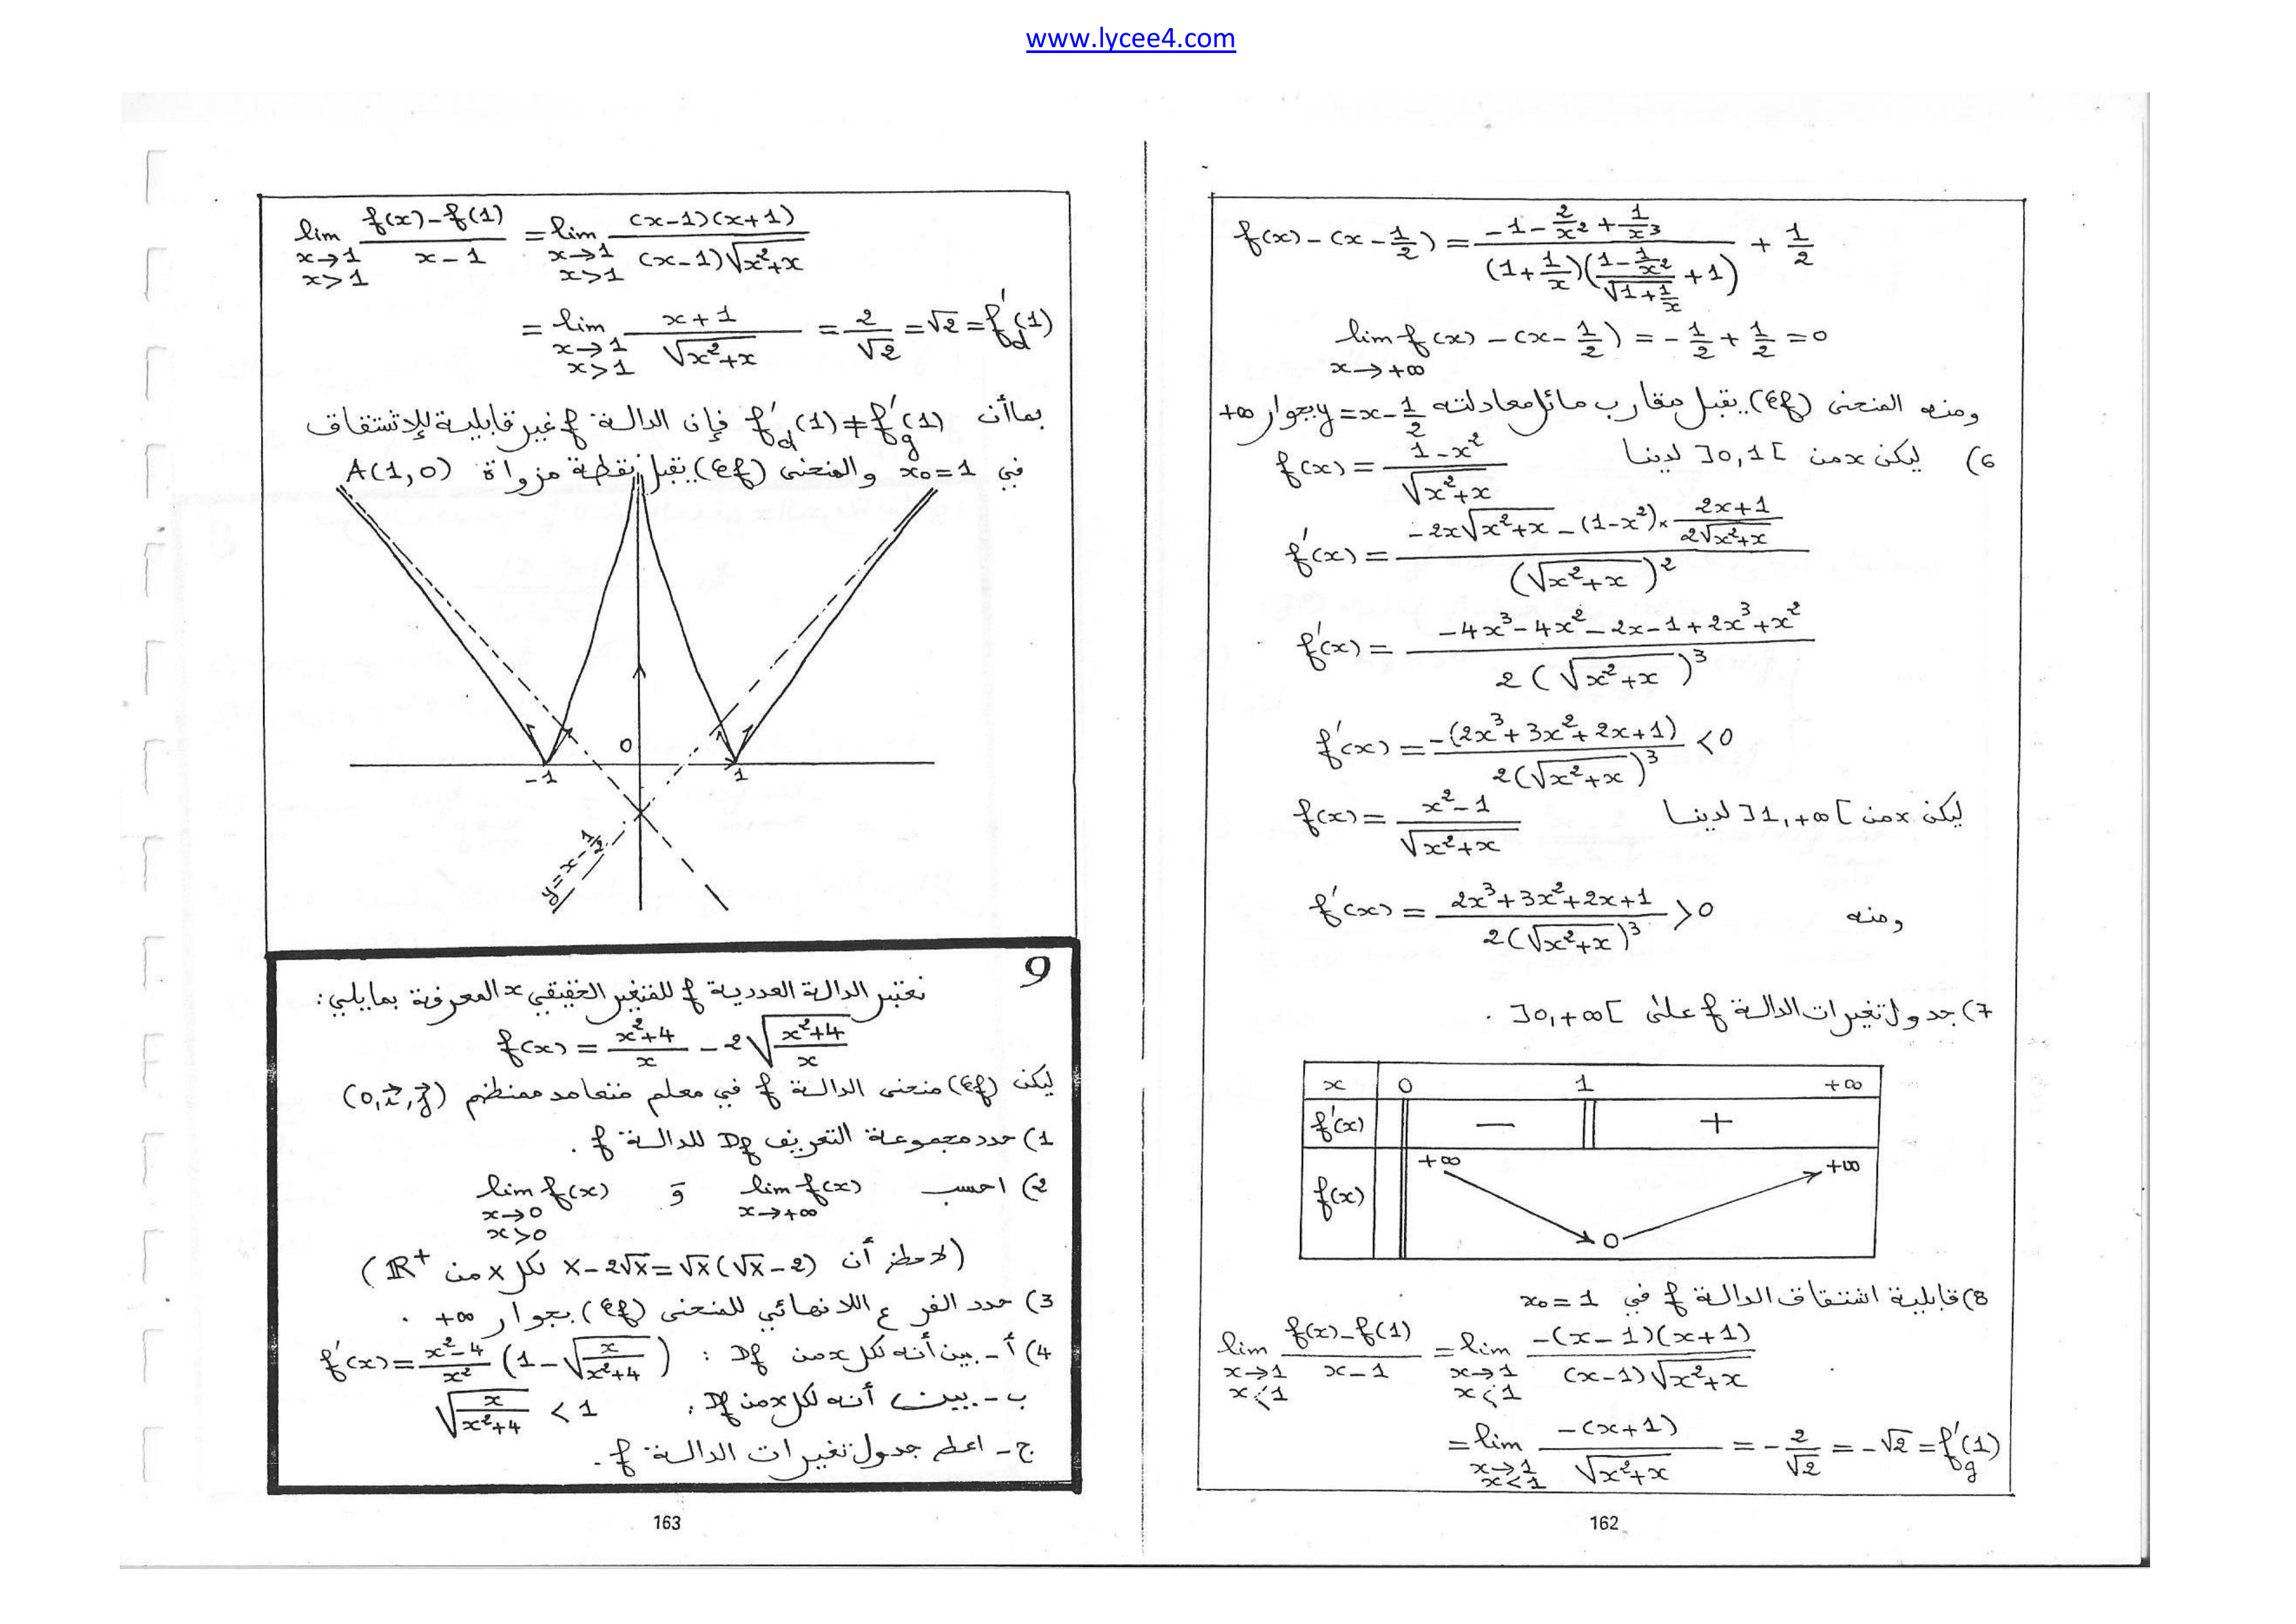 www.lycee4.com
f(x) - (x - 1/2) = (-1 - 2/x² + 1/x³) / ((1 + 1/x)((1 - 1/x²)/√(1 + 1/x) + 1)) + 1/2
lim f(x) - (x - 1/2) = -1/2 + 1/2 = 0
x→+∞
ومنه المنحنى (𝒞f) يقبل مقارب مائل معادلته y = x - 1/2 بجوار +∞
6) ليكن x من ]0,1[ لدينا f(x) = (1 - x²)/√(x²+x)
f'(x) = (-2x√(x²+x) - (1-x²) × (2x+1)/(2√(x²+x))) / (√(x²+x))²
f'(x) = (-4x³ - 4x² - 2x - 1 + 2x³ + x²) / (2(√(x²+x))³)
f'(x) = -(2x³ + 3x² + 2x + 1) / (2(√(x²+x))³) < 0
ليكن x من ]1,+∞[ لدينا f(x) = (x² - 1)/√(x²+x)
ومنه f'(x) = (2x³ + 3x² + 2x + 1) / (2(√(x²+x))³) > 0
7) جدول تغيرات الدالة f على ]0,+∞[ .
x 0 1 +∞
f'(x) − +
f(x) +∞ 0 +∞
8) قابلية اشتقاق الدالة f في x₀ = 1
lim (f(x) - f(1))/(x - 1) = lim (-(x-1)(x+1))/((x-1)√(x²+x))
x→1 x→1
x<1 x<1
= lim (-(x+1))/√(x²+x) = -2/√2 = -√2 = f'g(1)
x→1
x<1
162
lim (f(x) - f(1))/(x - 1) = lim ((x-1)(x+1))/((x-1)√(x²+x))
x→1 x→1
x>1 x>1
= lim (x+1)/√(x²+x) = 2/√2 = √2 = f'd(1)
x→1
x>1
بما أن f'd(1) ≠ f'g(1) فإن الدالة f غير قابلية للإشتقاق
في x₀ = 1 والمنحنى (𝒞f) يقبل نقطة مزواة A(1,0)
0
-1 1
y = x - 1/2
9
نعتبر الدالة العددية f للمتغير الحقيقي x المعرفة بمايلي:
f(x) = (x²+4)/x - 2√((x²+4)/x)
ليكن (𝒞f) منحنى الدالة f في معلم متعامد ممنظم (0,i⃗,j⃗)
1) حدد مجموعة التعريف Df للدالة f .
2) احسب lim f(x) و lim f(x)
x→+∞ x→0
x>0
(لاحظ أن X - 2√X = √X(√X - 2) لكل X من ℝ⁺)
3) حدد الفرع اللانهائي للمنحنى (𝒞f) بجوار +∞ .
4) أ - بين أنه لكل x من Df : f'(x) = (x²-4)/x² (1 - √(x/(x²+4)))
ب - بين أنه لكل x من Df : √(x/(x²+4)) < 1
ج - اعط جدول تغيرات الدالة f .
163